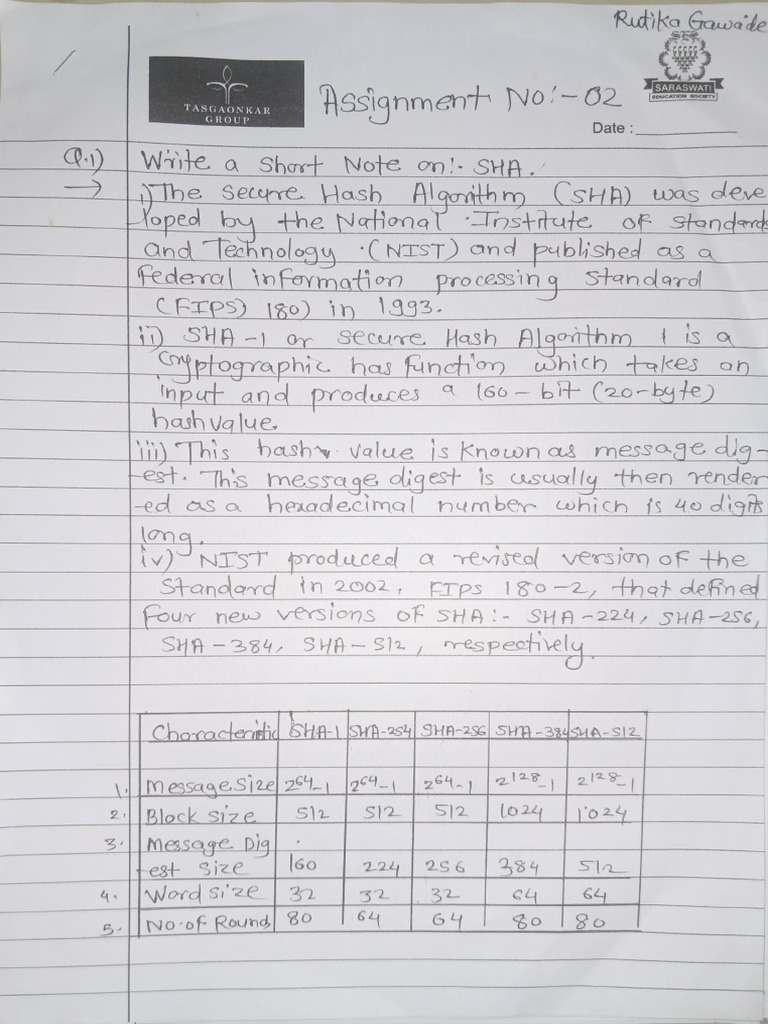 Rutika Gawade
TASGAONKAR
GROUP
Assignment No:-02
SARASWATI
EDUCATION SOCIETY
Date :
Q.1) Write a Short Note on:- SHA.
→ i) The Secure Hash Algorithm (SHA) was deve
loped by the National Institute of standards
and Technology (NIST) and published as a
federal information processing standard
(FIPS) 180) in 1993.
ii) SHA-1 or secure Hash Algorithm 1 is a
cryptographic has function which takes an
input and produces a 160-bit (20-byte)
hash value.
iii) This hash value is known as message dig-
est. This message digest is usually then render
-ed as a hexadecimal number which is 40 digits
long.
iv) NIST produced a revised version of the
Standard in 2002, FIPS 180-2, that defined
four new versions of SHA:- SHA-224, SHA-256,
SHA-384, SHA-512, respectively.
Characteristic SHA-1 SHA-254 SHA-256 SHA-384 SHA-512
1. Message Size 2^64-1 2^64-1 2^64-1 2^128-1 2^128-1
2. Block Size 512 512 512 1024 1024
3. Message Dig
est size 160 224 256 384 512
4. Word size 32 32 32 64 64
5. No.of Round 80 64 64 80 80